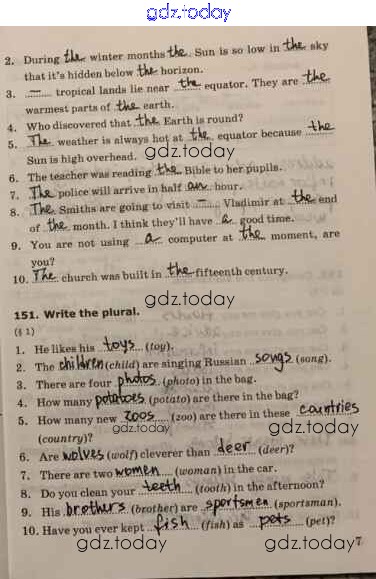 gdz.today
2. During the winter months the Sun is so low in the sky
that it's hidden below the horizon.
3. — tropical lands lie near the equator. They are the
warmest parts of the earth.
4. Who discovered that the Earth is round?
5. The weather is always hot at the equator because the
Sun is high overhead.
gdz.today
6. The teacher was reading the Bible to her pupils.
7. The police will arrive in half an hour.
8. The Smiths are going to visit — Vladimir at the end
of the month. I think they'll have a good time.
9. You are not using a computer at the moment, are
you?
10. The church was built in the fifteenth century.
gdz.today
151. Write the plural.
(§ 1)
1. He likes his toys (toy).
2. The children (child) are singing Russian songs (song).
3. There are four photos (photo) in the bag.
4. How many potatoes (potato) are there in the bag?
5. How many new zoos (zoo) are there in these countries
(country)?
gdz.today
gdz.today
6. Are wolves (wolf) cleverer than deer (deer)?
7. There are two women (woman) in the car.
8. Do you clean your teeth (tooth) in the afternoon?
9. His brothers (brother) are sportsmen (sportsman).
10. Have you ever kept fish (fish) as pets (pet)?
7
gdz.today
gdz.today